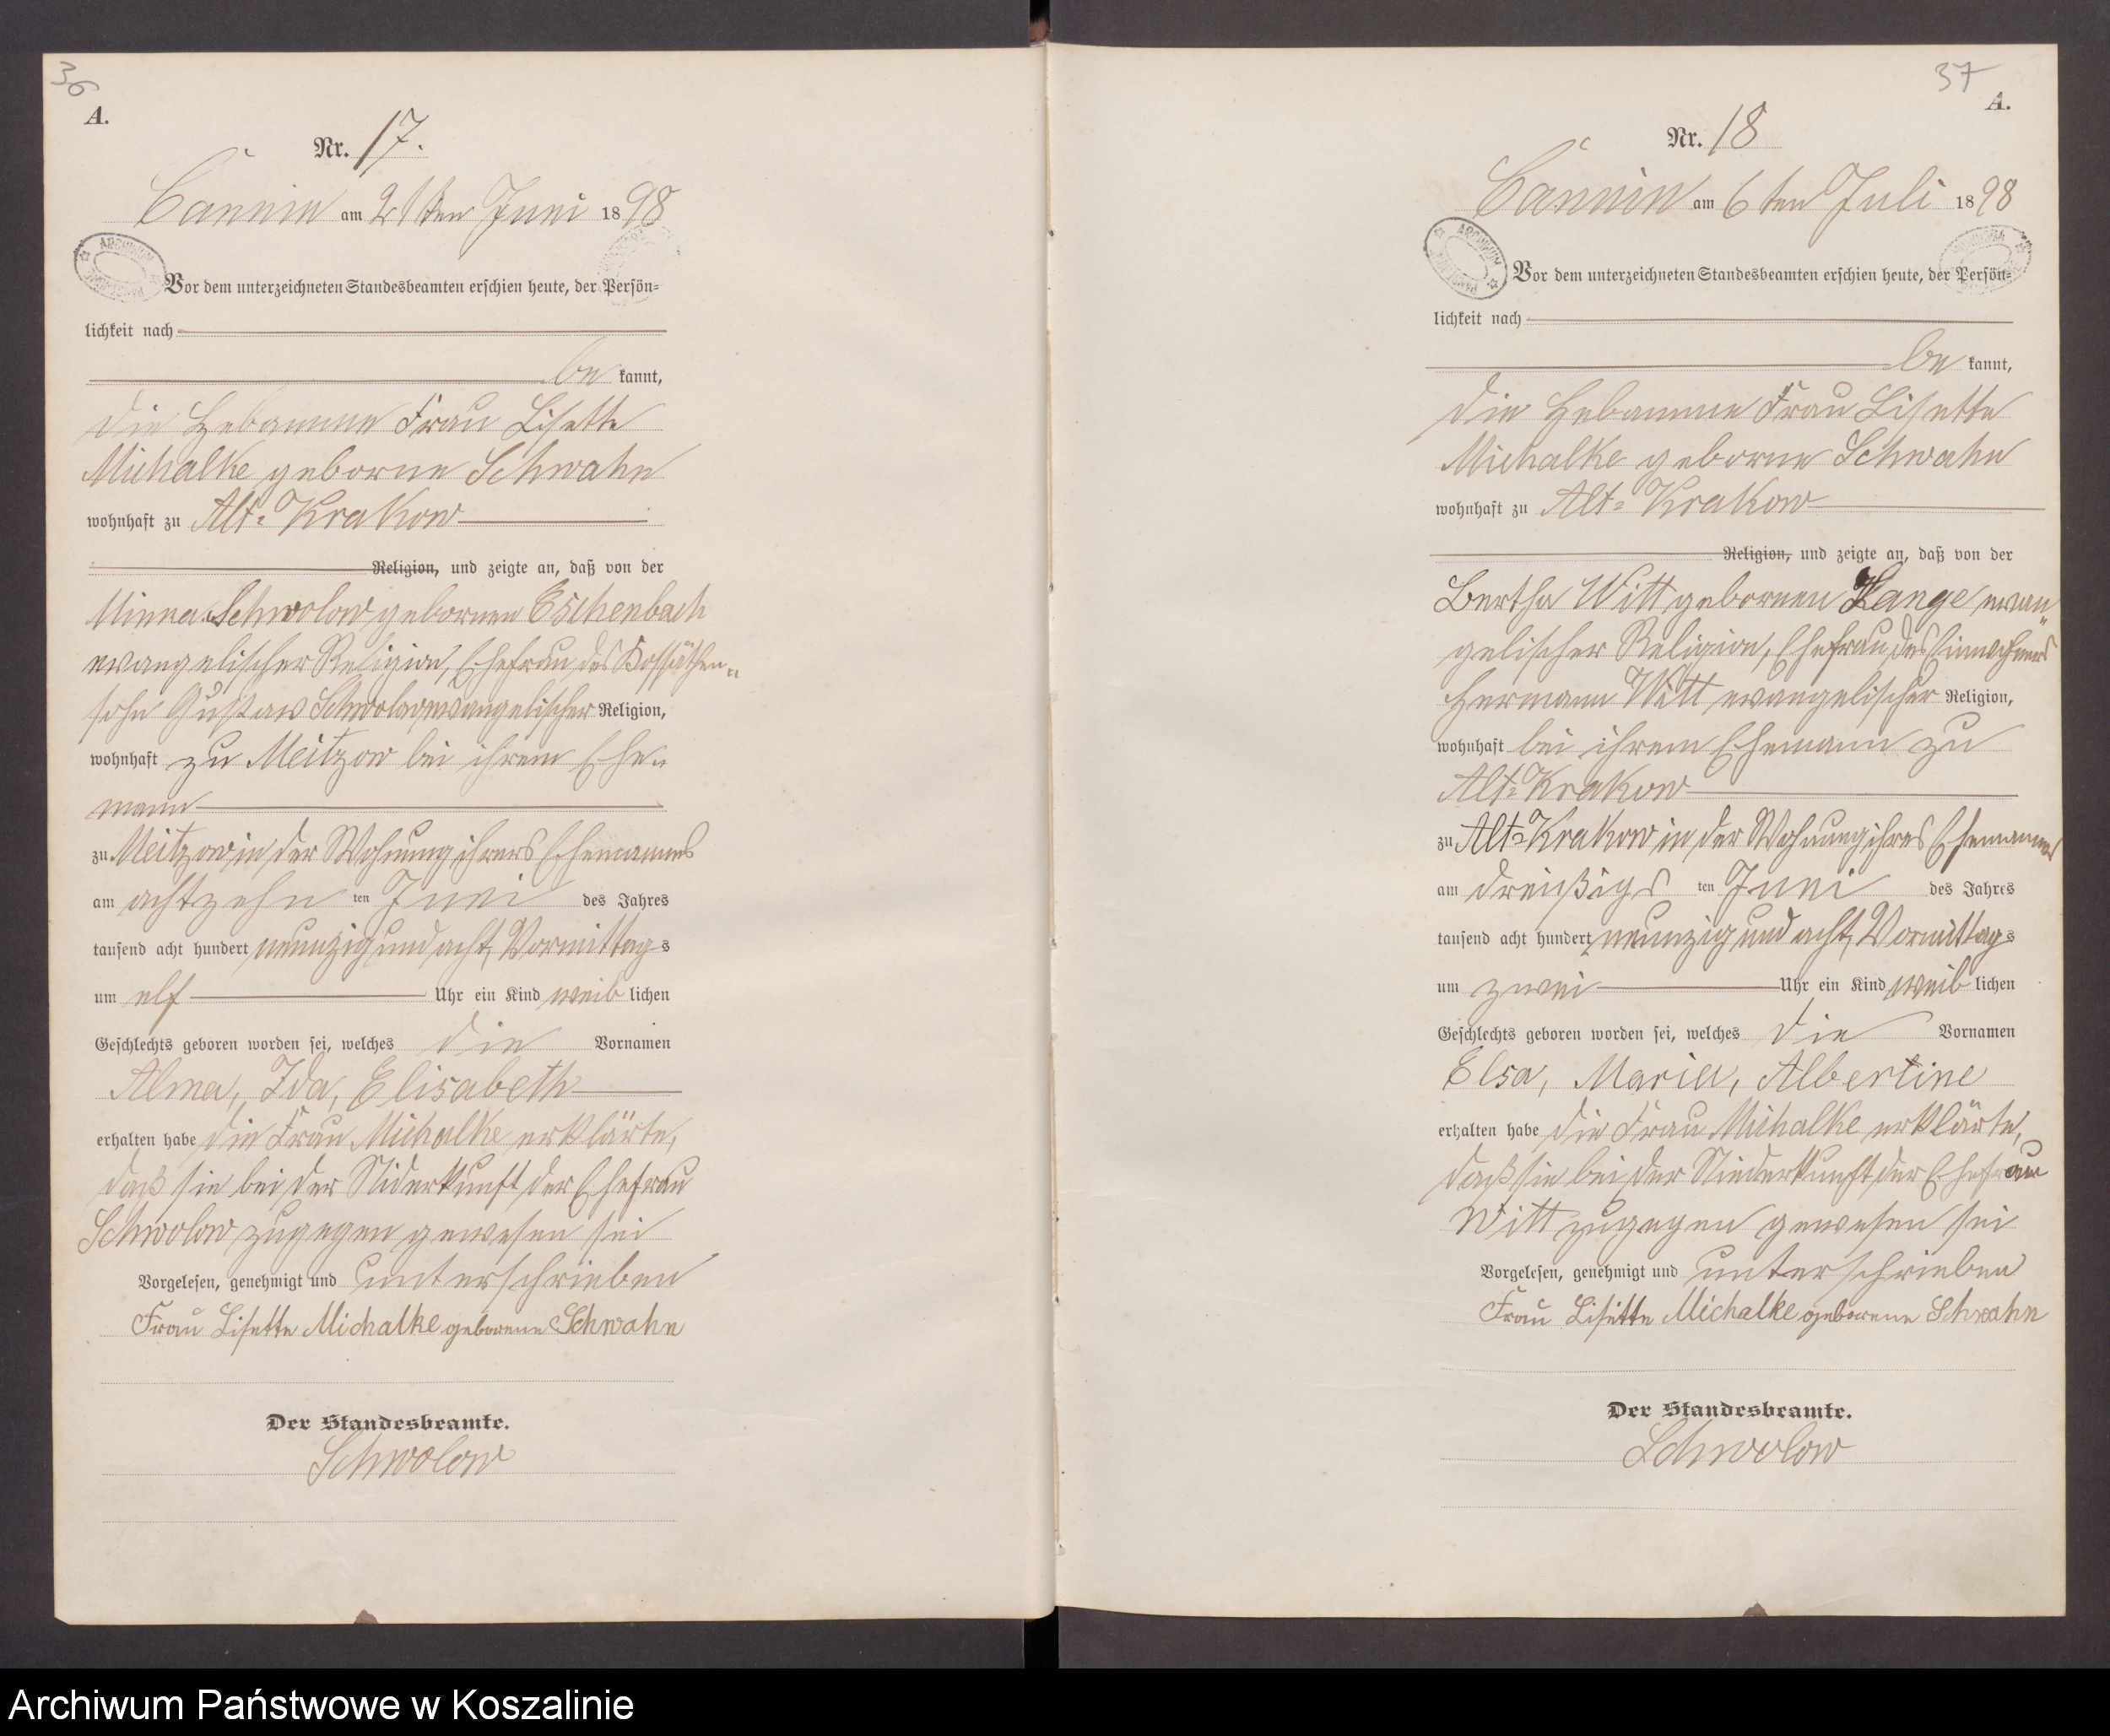 36
A.
Nr. 17.
Cannin am 21ten Juni 1898
Vor dem unterzeichneten Standesbeamten erschien heute, der Persön-
lichkeit nach
be kannt,
die Hebamme Frau Lisette
Michalke geborne Schwahn
wohnhaft zu Alt-Krakow
Religion, und zeigte an, daß von der
Minna Schwolow gebornen Eschenbach
evangelischer Religion, Ehefrau des Kossäthen-
sohn Gustav Schwolow evangelischer Religion,
wohnhaft zu Meitzow bei ihrem Ehe-
mann
zu Meitzow in der Wohnung ihres Ehemannes
am achtzehn ten Juni des Jahres
tausend acht hundert neunzig und acht, Vormittags
um elf Uhr ein Kind weib lichen
Geschlechts geboren worden sei, welches die Vornamen
Alma, Ida, Elisabeth
erhalten habe die Frau Michalke erklärte,
daß sie bei der Niderkunft der Ehefrau
Schwolow zugegen gewesen sei
Vorgelesen, genehmigt und unterschrieben
Frau Lisette Michalke geborene Schwahn
Der Standesbeamte.
Schwolow
37
A.
Nr. 18
Cannin am 6ten Juli 1898
Vor dem unterzeichneten Standesbeamten erschien heute, der Persön-
lichkeit nach
be kannt,
die Hebamme Frau Lisette
Michalke geborne Schwahn
wohnhaft zu Alt-Krakow
Religion, und zeigte an, daß von der
Bertha Witt gebornen evan-
gelischer Religion, Ehefrau des Einwohners
Hermann Witt evangelischer Religion,
wohnhaft bei ihrem Ehemann zu
Alt-Krakow
zu Alt-Krakow in der Wohnung ihres Ehemannes
am dreißigs ten Juni des Jahres
tausend acht hundert neunzig und acht, Vormittags
um zwei Uhr ein Kind weib lichen
Geschlechts geboren worden sei, welches die Vornamen
Elsa, Maria, Albertine
erhalten habe die Frau Michalke erklärte,
daß sie bei der Niederkunft der Ehefrau
Witt zugegen gewesen sei
Vorgelesen, genehmigt und unterschrieben
Frau Lisette Michalke geborene Schwahn
Der Standesbeamte.
Schwolow
Archiwum Państwowe w Koszalinie